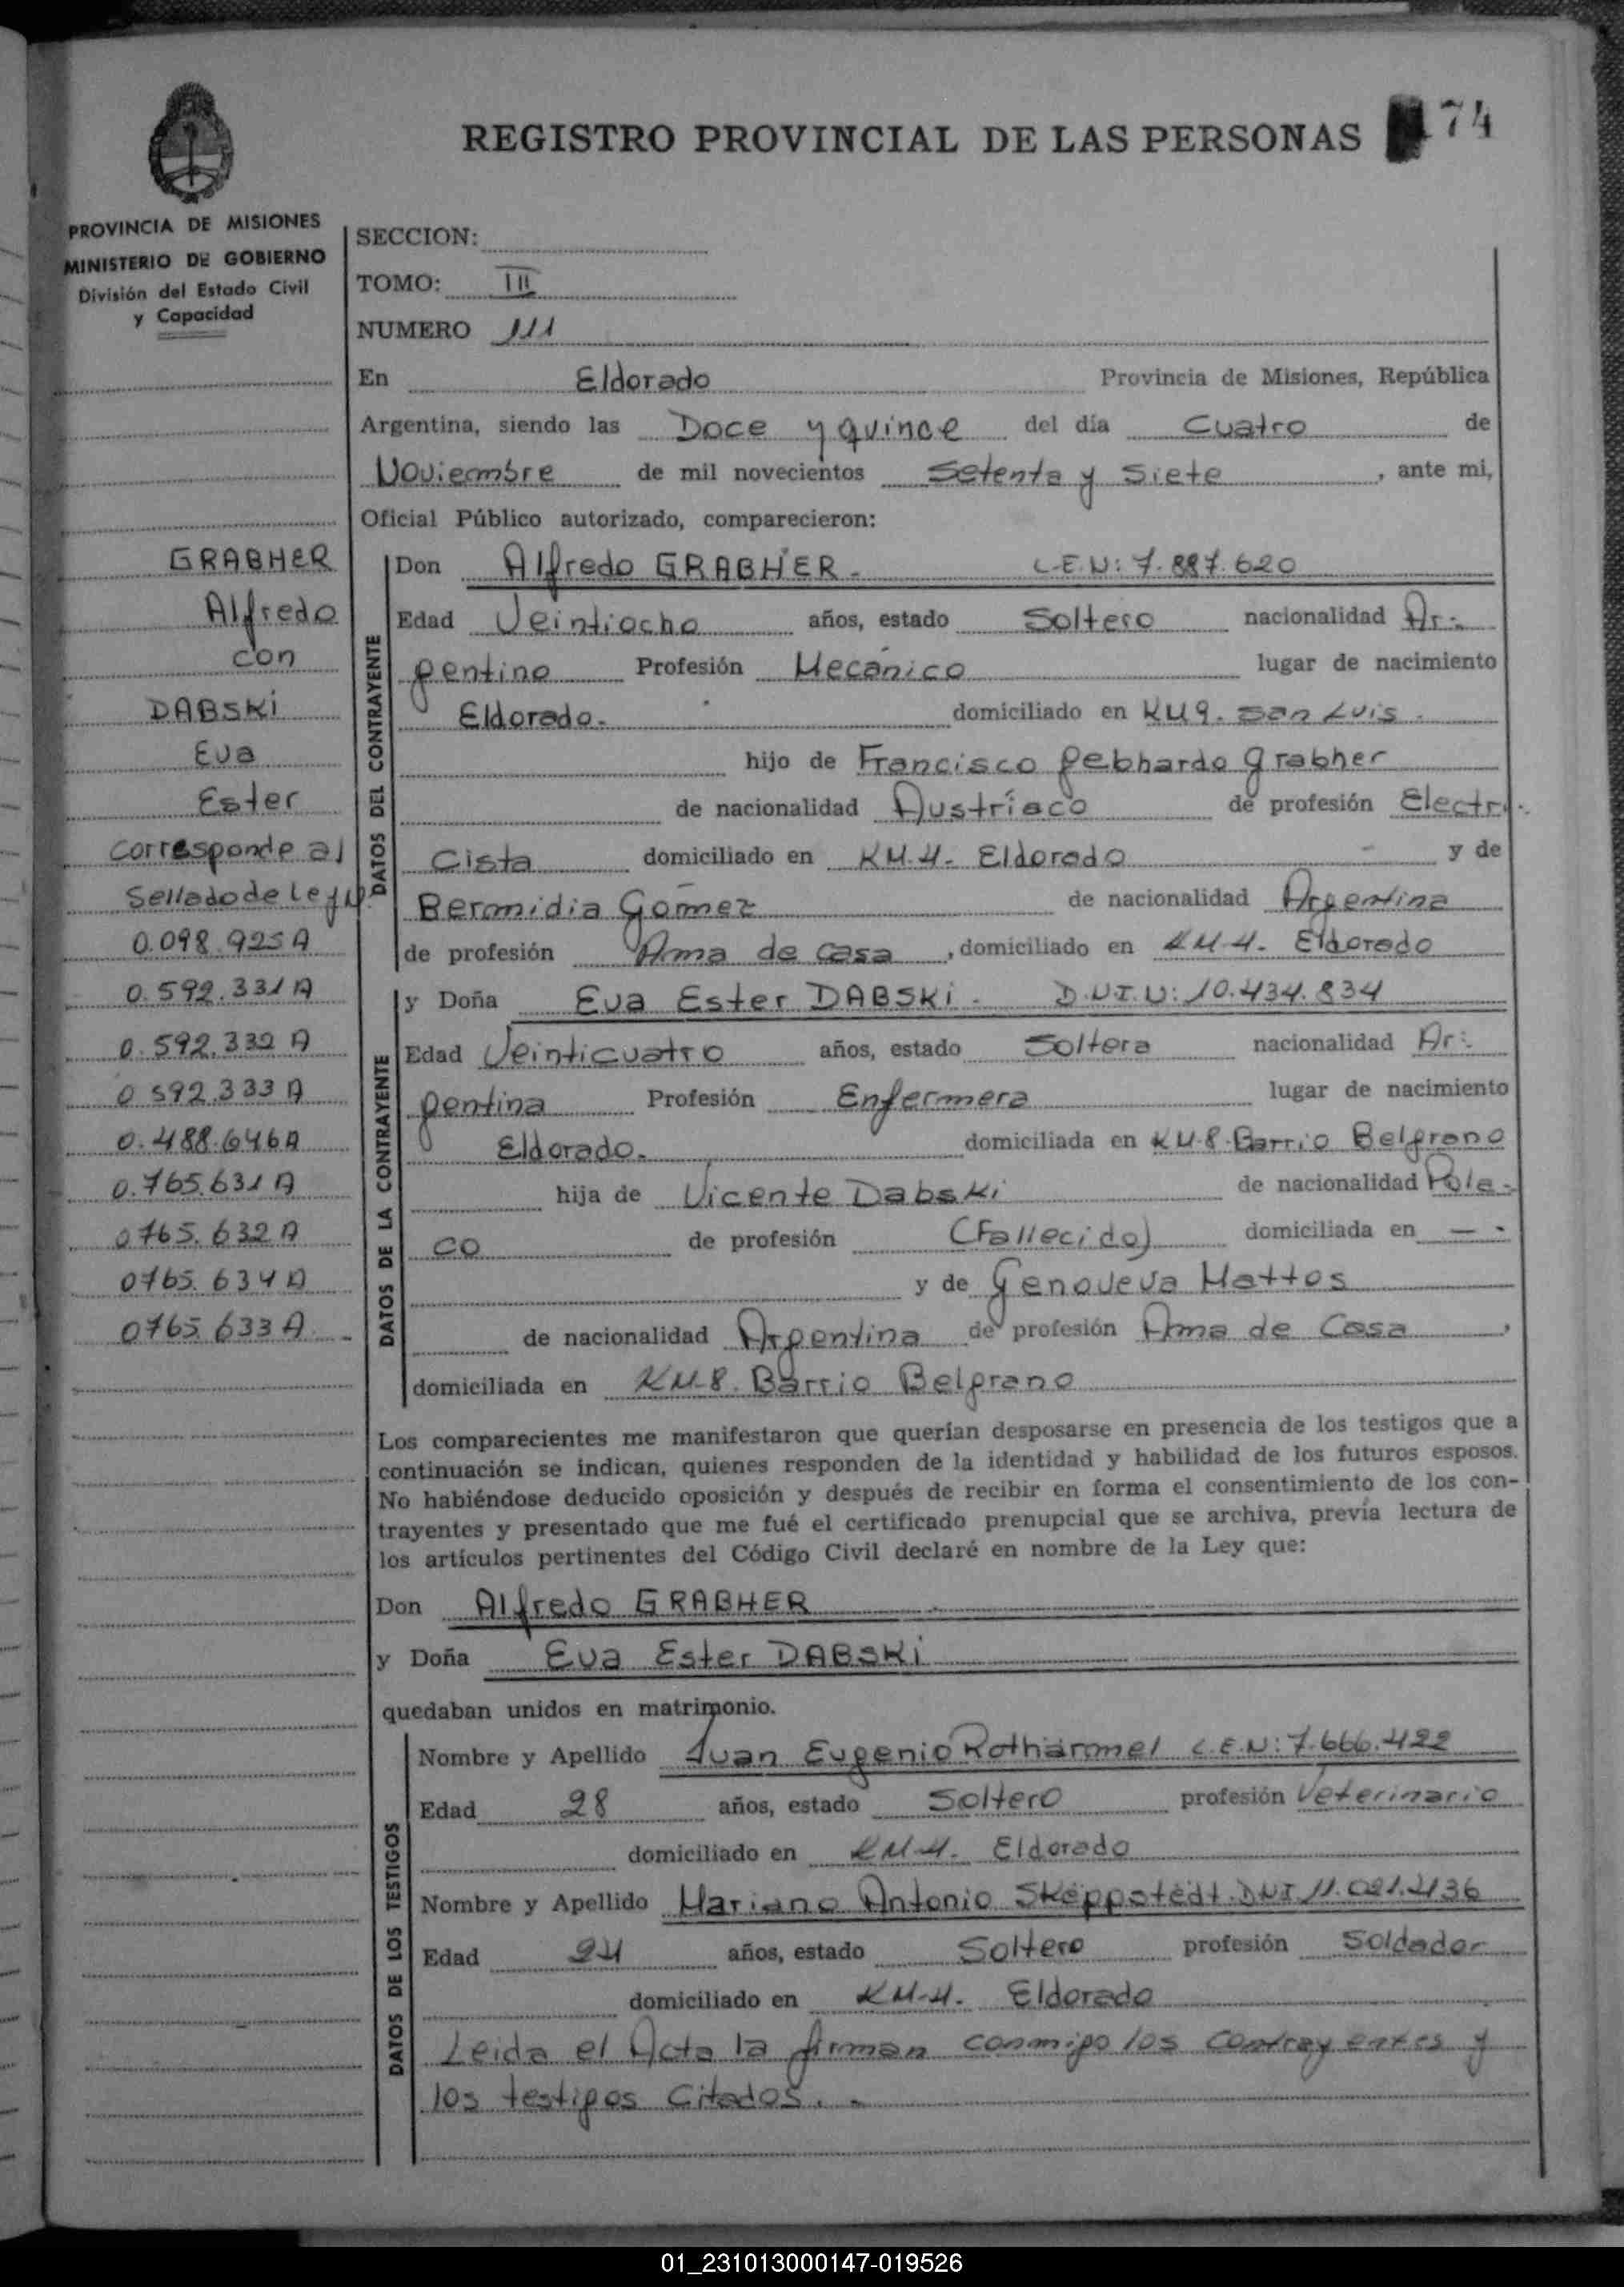 REGISTRO PROVINCIAL DE LAS PERSONAS 174
PROVINCIA DE MISIONES
MINISTERIO DE GOBIERNO
División del Estado Civil
y Capacidad
GRABHER
Alfredo
con
DABSKI
Eva
Ester
Corresponde al
Sellado de Ley N
0.098.925 A
0.592.331 A
0.592.332 A
0.592.333 A
0.488.646 A
0.765.631 A
0765.632 A
0765.634 A
0765.633 A.-
SECCION:
TOMO: III
NUMERO 111
En Eldorado Provincia de Misiones, República
Argentina, siendo las Doce y quince del día Cuatro de
Noviembre de mil novecientos Setenta y Siete, ante mi,
Oficial Público autorizado, comparecieron:
DATOS DEL CONTRAYENTE
Don Alfredo GRABHER.- L.E.N: 7.887.620
Edad Veintiocho años, estado Soltero nacionalidad Ar-
gentino Profesión Mecánico lugar de nacimiento
Eldorado.- domiciliado en KM 9. San Luis.
hijo de Francisco gebhardo grabher
de nacionalidad Austríaco de profesión Electri-
Cista domiciliado en KM.4- Eldorado y de
Bermidia Gomez de nacionalidad Argentina
de profesión Ama de casa, domiciliado en KM-4- Eldorado
DATOS DE LA CONTRAYENTE
y Doña Eva Ester DABSKI.- D.N.I.N: 10.434.834
Edad Veinticuatro años, estado Soltera nacionalidad Ar-
gentina Profesión Enfermera lugar de nacimiento
Eldorado.- domiciliada en KM-8-Barrio Belgrano
hija de Vicente Dabski de nacionalidad Pola-
co de profesión (Fallecido) domiciliada en — -
y de Genoveva Mattos
de nacionalidad Argentina de profesión Ama de Casa,
domiciliada en KM-8. Barrio Belgrano
Los comparecientes me manifestaron que querían desposarse en presencia de los testigos que a
continuación se indican, quienes responden de la identidad y habilidad de los futuros esposos.
No habiéndose deducido oposición y después de recibir en forma el consentimiento de los con-
trayentes y presentado que me fué el certificado prenupcial que se archiva, previa lectura de
los artículos pertinentes del Código Civil declaré en nombre de la Ley que:
Don Alfredo GRABHER
y Doña Eva Ester DABSKI
quedaban unidos en matrimonio.
DATOS DE LOS TESTIGOS
Nombre y Apellido Juan Eugenio Rotharmel L.E.N: 7.666.422
Edad 28 años, estado Soltero profesión Veterinario
domiciliado en KM-4. Eldorado
Nombre y Apellido Mariano Antonio Skeppstedt. DNI 11.021.436
Edad 24 años, estado Soltero profesión Soldador
domiciliado en KM-4. Eldorado
Leida el Acta la firman conmigo los contrayentes y
los testigos Citados. -
01_231013000147-019526